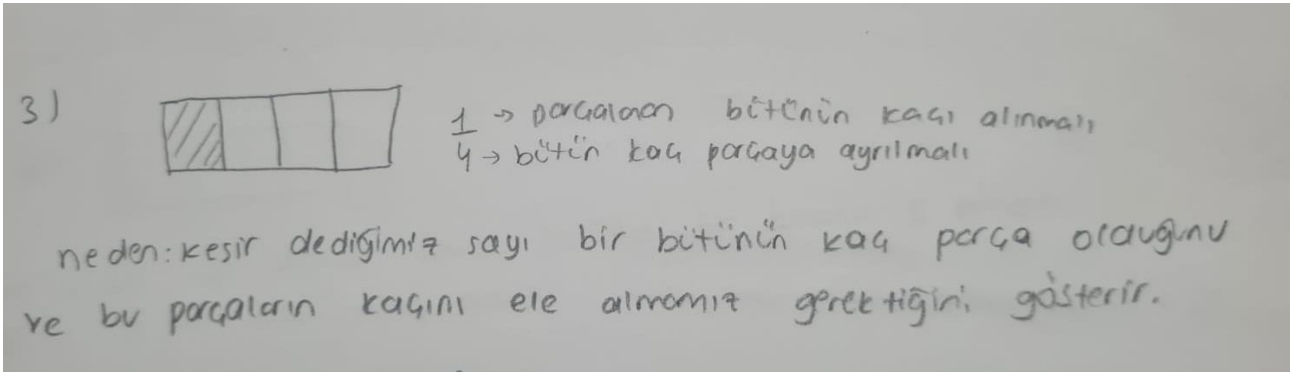 3)
1 → parçalanan bütünün kaçı alınmalı
4 → bütün kaç parçaya ayrılmalı
neden: kesir dediğimiz sayı bir bütünün kaç parça olduğunu
ve bu parçaların kaçını ele almamız gerektiğini gösterir.